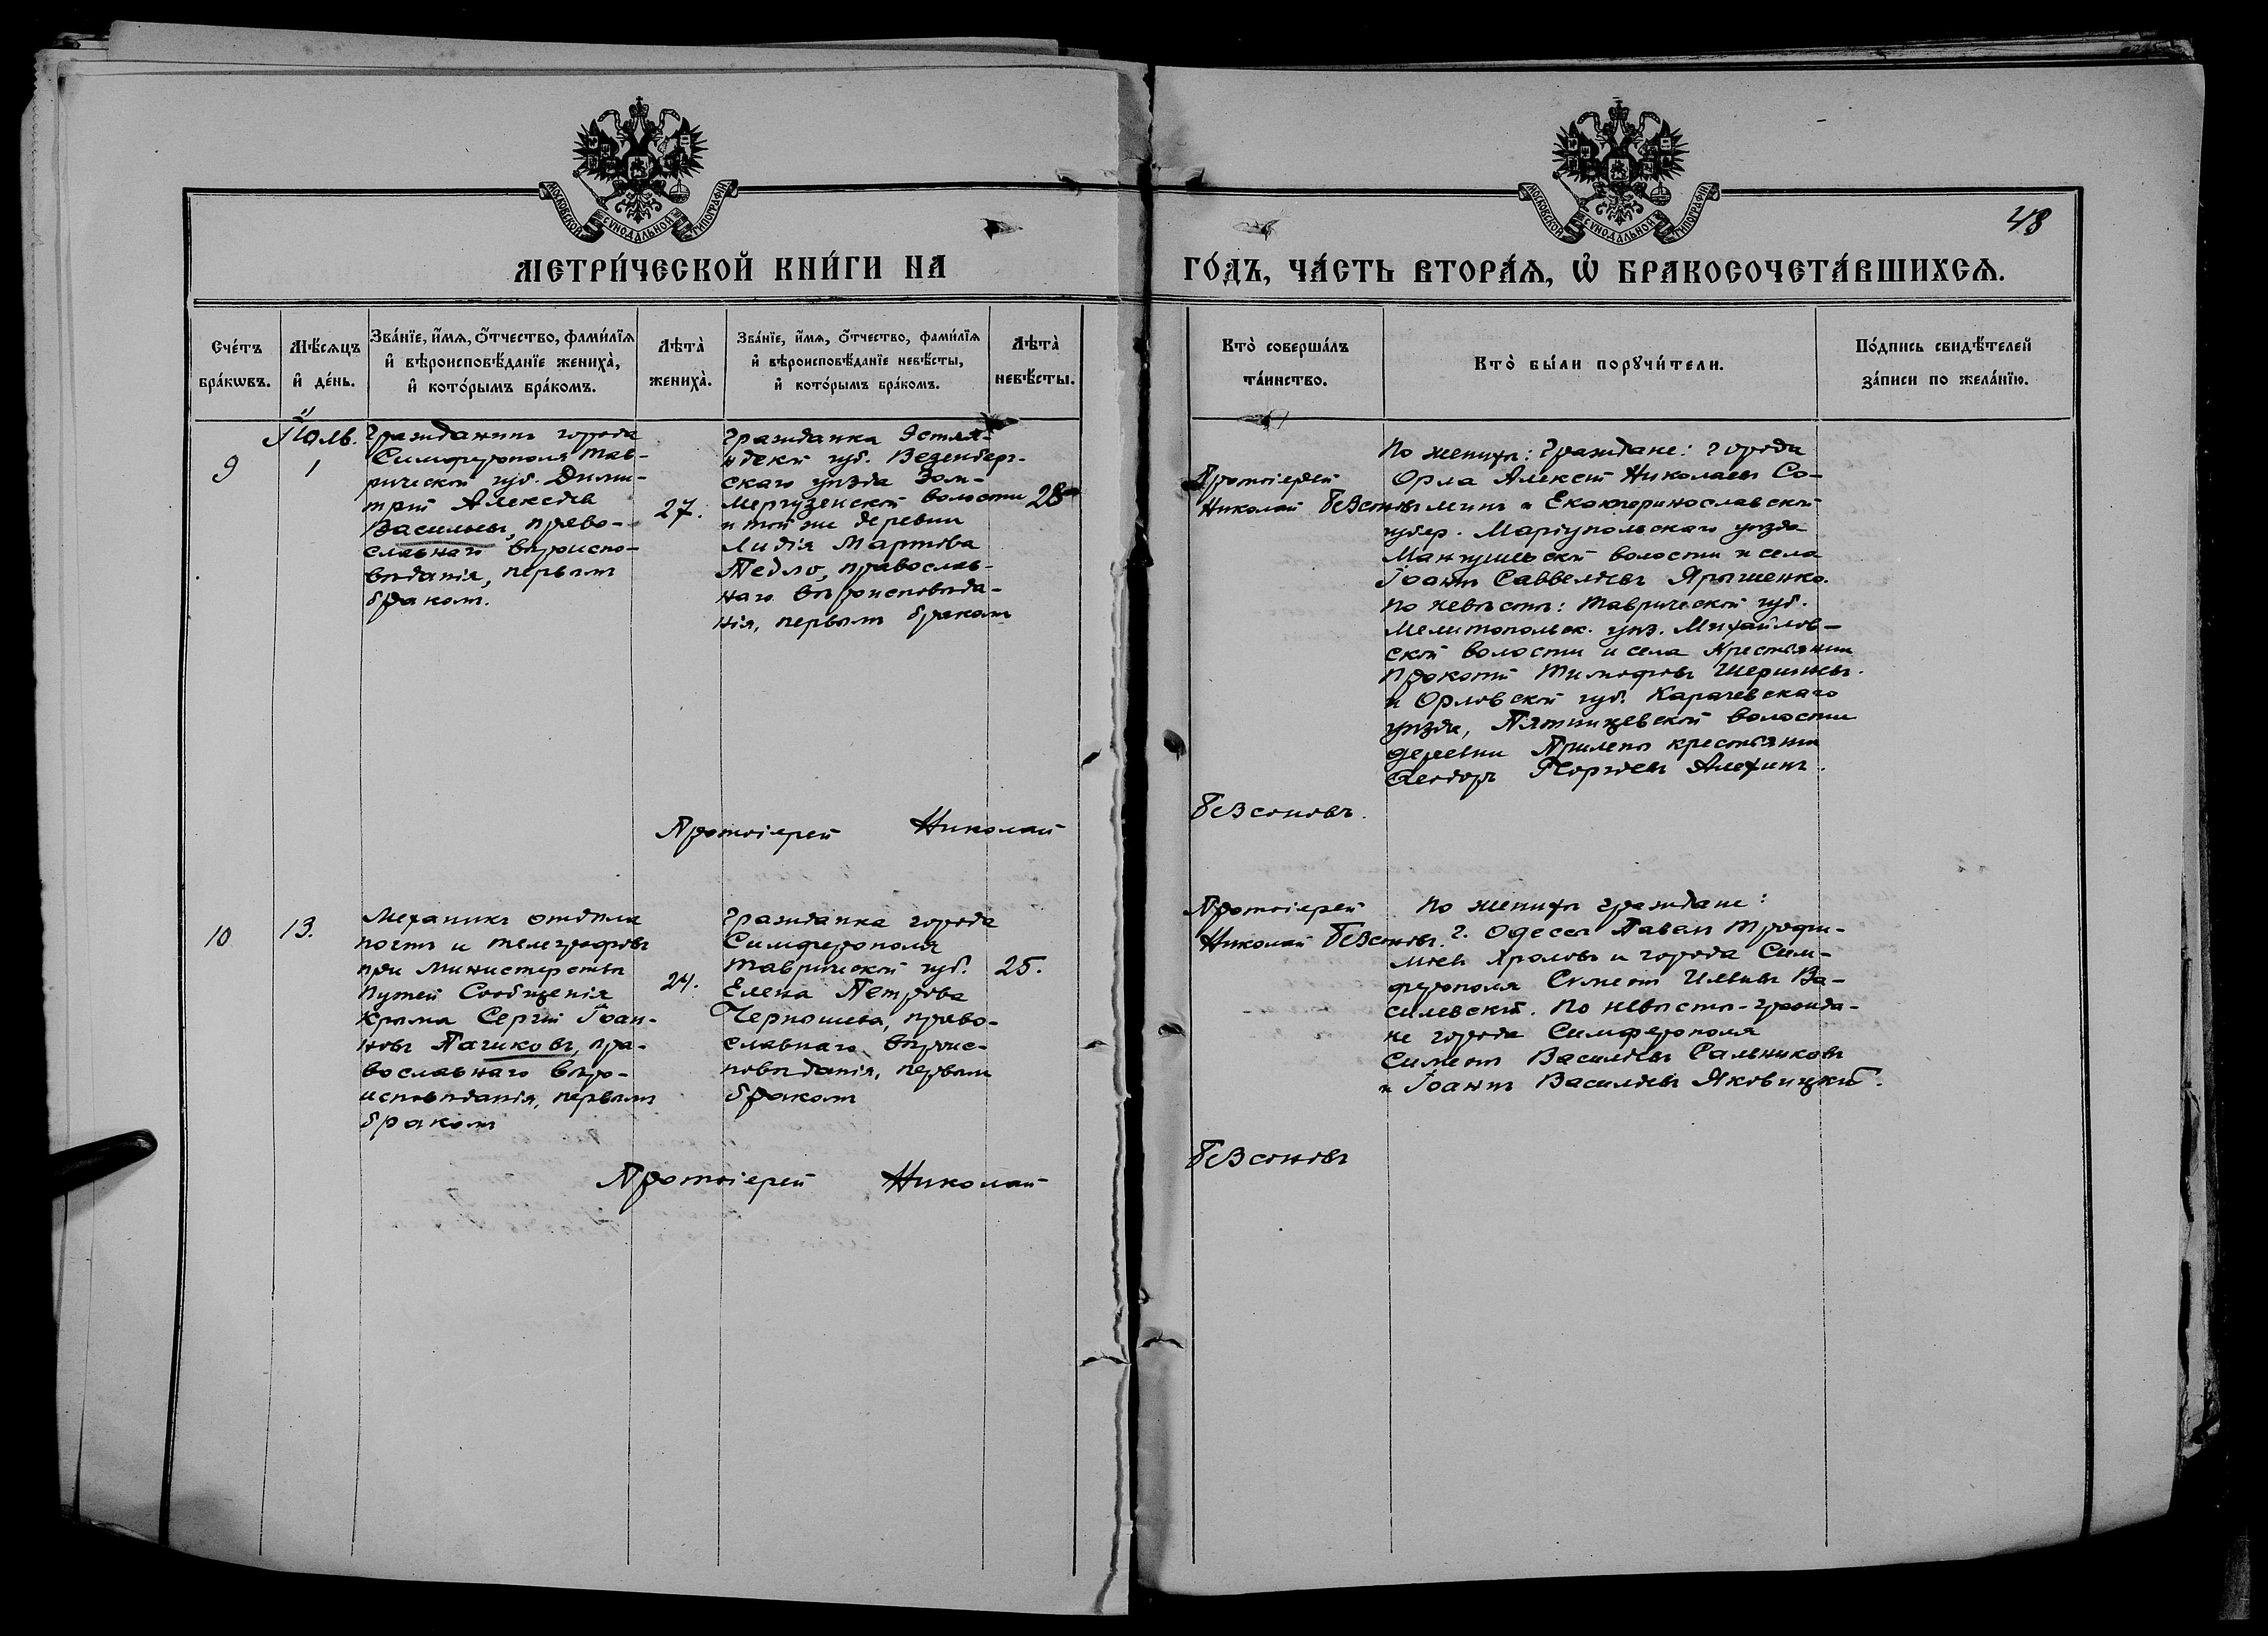 МОСКОВСКОЙ СѴНОДАЛЬНОЙ ТИПОГРАФІИ
МОСКОВСКОЙ СѴНОДАЛЬНОЙ ТИПОГРАФІИ
48
МЕТРИ́ЧЕСКОЙ КНИ́ГИ НА
ГО́ДЪ, ЧА́СТЬ ВТОРА́Ѧ, Ѽ БРАКОСОЧЕТА́ВШИХСѦ.
Сче́тъ
бра́кѡвъ.
Мѣ́сѧцъ
и҆ де́нь.
Зва́нїе, и҆́мѧ, ѻ҆́тчество, фами́лїѧ
и҆ вѣроисповѣ́данїе жениха̀,
и҆ кото́рымъ бра́комъ.
Лѣта̀
жениха̀.
Зва́нїе, и҆́мѧ, ѻ҆́тчество, фами́лїѧ
и҆ вѣроисповѣ́данїе невѣ́сты,
и҆ кото́рымъ бра́комъ.
Лѣта̀
невѣ́сты.
Кто̀ соверша́лъ
та́инство.
Кто̀ бы́ли порꙋчи́тели.
По́дпись свидѣ́телей
за́писи по жела́нїю.
9
Іюль.
1
Гражданинъ города
Симферополя Тав-
рической губ. Дими-
трій Алексѣевъ
Васильевъ, право-
славнаго вѣроиспо-
вѣданія, первымъ
бракомъ.
27.
Гражданка Эстлян-
дской губ. Везенберг-
скаго уѣзда
волости
и той же деревни
Лидія Мартова
Тедло, православ-
наго вѣроисповѣда-
нія, первымъ бракомъ
28
Протоіерей
Николай Безсоновъ
По женихѣ: Граждане: города
Орла Алексѣй Николаевъ Со-
минъ и Екатеринославской
губер. Маріупольскаго уѣзда
Мангушской волости и села
Іоаннъ Савельевъ Ярошенко.
По невѣстѣ: Таврической губ.
Мелитопольск. уѣз. Михайлов-
ской волости и села крестьянинъ
Прокопій Тимофеевъ
и Орловской губ. Карачевскаго
уѣзда, Пятницевской волости
деревни Прилепъ крестьянинъ
Ѳеодоръ Георгіевъ Алехинъ.
Протоіерей Николай Безсоновъ.
10
13.
Механикъ отдѣла
почтъ и телеграфовъ
при Министерствѣ
Путей Сообщенія
Крыма Сергій Іоан-
новъ Пачиковъ, пра-
вославнаго вѣро-
исповѣданія, первымъ
бракомъ
24.
Гражданка города
Симферополя
Таврической губ.
Елена Петрова
Чернышева, право-
славнаго вѣроис-
повѣданія, первымъ
бракомъ
25.
Протоіерей
Николай Безсоновъ.
По женихѣ граждане:
г. Одессы Павелъ Трофи-
мовъ Хромовъ и города Сим-
ферополя Симеонъ Ильинъ Ва-
силевскій. По невѣстѣ-гражда-
не города Симферополя
Симеонъ Васильевъ Сальниковъ
и Іоаннъ Васильевъ Яковицкій.
Протоіерей Николай Безсоновъ